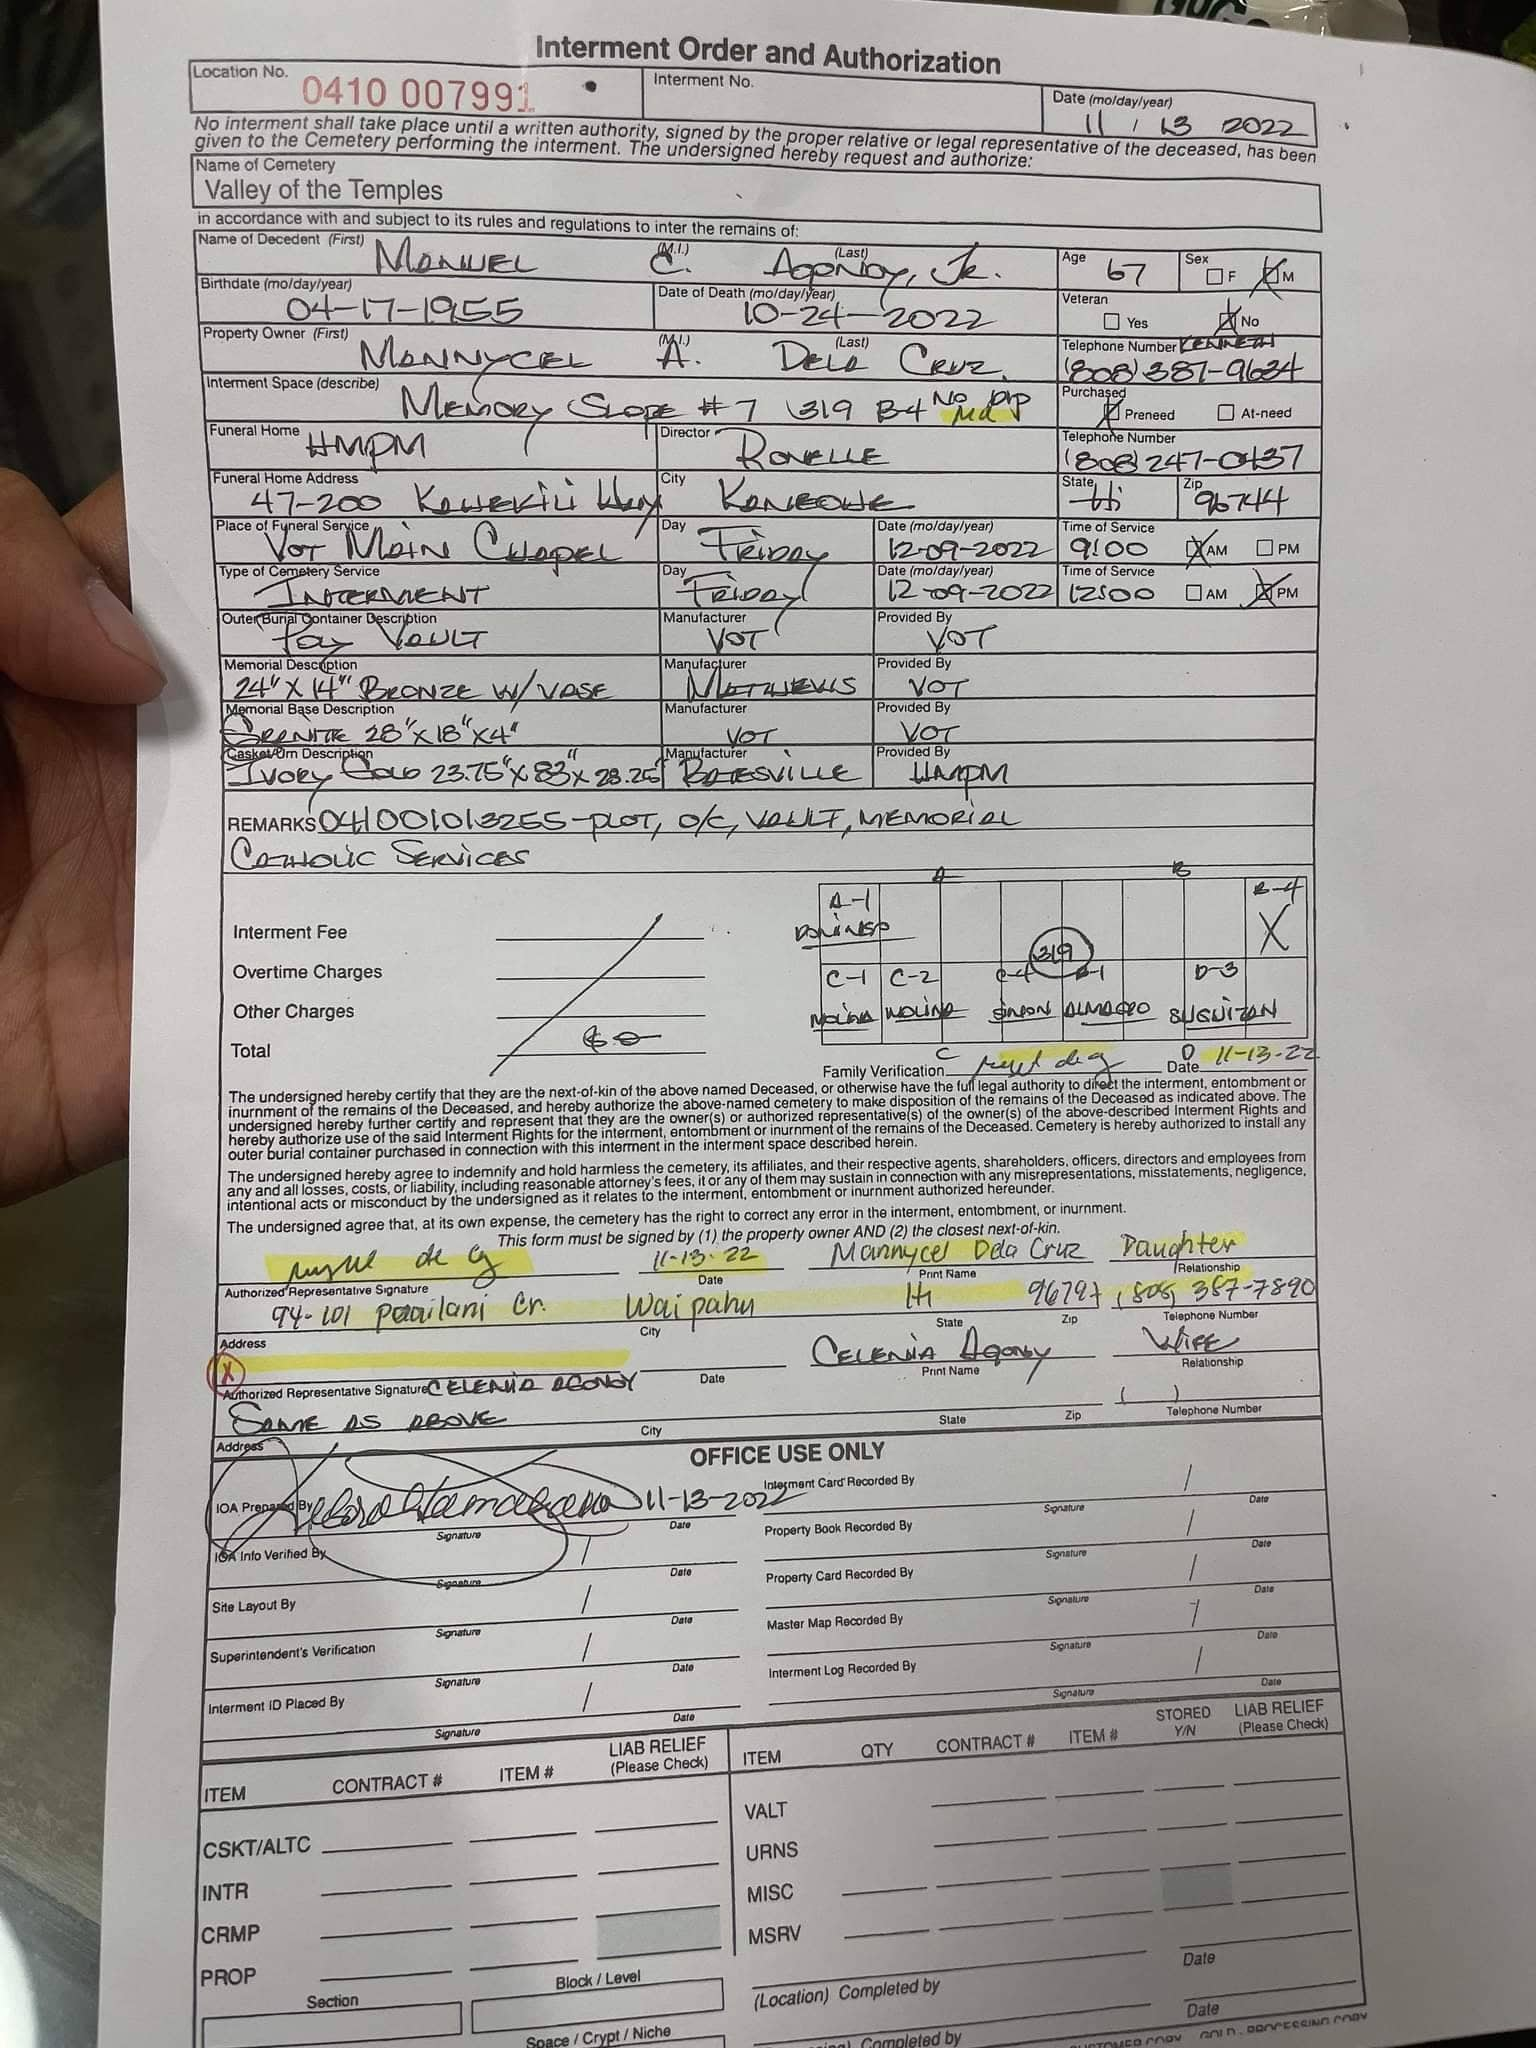 Interment Order and Authorization
Location No. 0410 007991
Interment No.
Date (mo/day/year) 11 / 13 2022
No interment shall take place until a written authority, signed by the proper relative or legal representative of the deceased, has been
given to the Cemetery performing the interment. The undersigned hereby request and authorize:
Name of Cemetery
Valley of the Temples
in accordance with and subject to its rules and regulations to inter the remains of:
Name of Decedent (First) Manuel (M.I.) C. (Last) Agonoy, Jr. Age 67 Sex F M
Birthdate (mo/day/year) 04-17-1955 Date of Death (mo/day/year) 10-24-2022 Veteran Yes No
Property Owner (First) Mannycel (M.I.) A. (Last) Dela Cruz Telephone Number Kenneth (808) 387-9634
Interment Space (describe) Memory Slope #7 319 B-4 No Purchased Preneed At-need
Funeral Home HMPM Director Ronelle Telephone Number (808) 247-0437
Funeral Home Address 47-200 Kahekili Hwy City Kaneohe State Hi Zip 96744
Place of Funeral Service VOT Main Chapel Day Friday Date (mo/day/year) 12-09-2022 Time of Service 9:00 AM PM
Type of Cemetery Service Interment Day Friday Date (mo/day/year) 12-09-2022 Time of Service 12:00 AM PM
Outer Burial Container Description Poly Vault Manufacturer VOT Provided By VOT
Memorial Description 24" X 14" Bronze w/ vase Manufacturer Matthews Provided By VOT
Memorial Base Description Granite 28" x 18" x 4" Manufacturer VOT Provided By VOT
Casket/Urn Description Ivory Gold 23.75" x 83" x 28.25" Manufacturer Batesville Provided By HMPM
REMARKS 041001013255-plot, o/c, vault, memorial
Catholic Services
A B
A-1 B-4
Domingo X
319
C-1 C-2 C-4 D-1 D-3
Molina Molina Simon Almagro Sugnitan
C D
Interment Fee
Overtime Charges
Other Charges
Total $0
Family Verification Date 11-13-22
The undersigned hereby certify that they are the next-of-kin of the above named Deceased, or otherwise have the full legal authority to direct the interment, entombment or
inurnment of the remains of the Deceased, and hereby authorize the above-named cemetery to make disposition of the remains of the Deceased as indicated above. The
undersigned hereby further certify and represent that they are the owner(s) or authorized representative(s) of the owner(s) of the above-described Interment Rights and
hereby authorize use of the said Interment Rights for the interment, entombment or inurnment of the remains of the Deceased. Cemetery is hereby authorized to install any
outer burial container purchased in connection with this interment in the interment space described herein.
The undersigned hereby agree to indemnify and hold harmless the cemetery, its affiliates, and their respective agents, shareholders, officers, directors and employees from
any and all losses, costs, or liability, including reasonable attorney's fees, it or any of them may sustain in connection with any misrepresentations, misstatements, negligence,
intentional acts or misconduct by the undersigned as it relates to the interment, entombment or inurnment authorized hereunder.
The undersigned agree that, at its own expense, the cemetery has the right to correct any error in the interment, entombment, or inurnment.
This form must be signed by (1) the property owner AND (2) the closest next-of-kin.
11-13-22 Mannycel Dela Cruz Daughter
Authorized Representative Signature Date Print Name Relationship
94-101 Paailani Cr. Waipahu Hi 96797 (808) 387-7890
Address City State Zip Telephone Number
X Celenia Agonoy Wife
Authorized Representative Signature Celenia Agonoy Date Print Name Relationship
Same as above ( )
Address City State Zip Telephone Number
OFFICE USE ONLY
IOA Prepared By 11-13-2022 Interment Card Recorded By /
Signature Date Signature Date
IOA Info Verified By / Property Book Recorded By /
Signature Date Signature Date
Site Layout By / Property Card Recorded By /
Signature Date Signature Date
Superintendent's Verification / Master Map Recorded By /
Signature Date Signature Date
Interment ID Placed By / Interment Log Recorded By /
Signature Date Signature Date
ITEM CONTRACT # ITEM # LIAB RELIEF (Please Check) ITEM QTY CONTRACT # ITEM # STORED Y/N LIAB RELIEF (Please Check)
CSKT/ALTC VALT
INTR URNS
CRMP MISC
PROP MSRV
Section Block / Level
Date
(Location) Completed by
Space / Crypt / Niche
Date
Completed by
CUSTOMER COPY GOLD - PROCESSING COPY